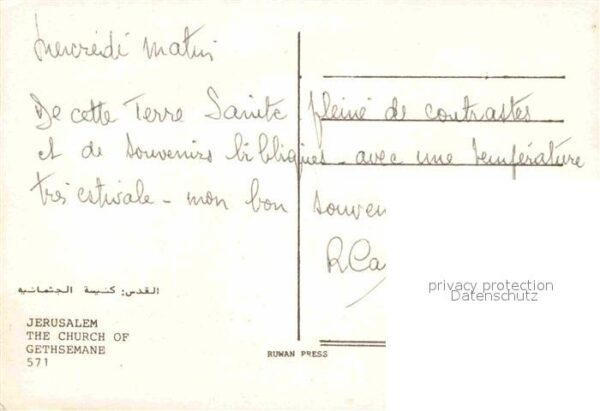 Mercredi matin
De cette Terre Sainte pleine de contrastes
et de souvenirs bibliques - avec une température
très estivale - mon bon souven
R Ca
القدس: كنيسة الجثمانيه
JERUSALEM
THE CHURCH OF
GETHSEMANE
571
RUWAN PRESS
privacy protection
Datenschutz